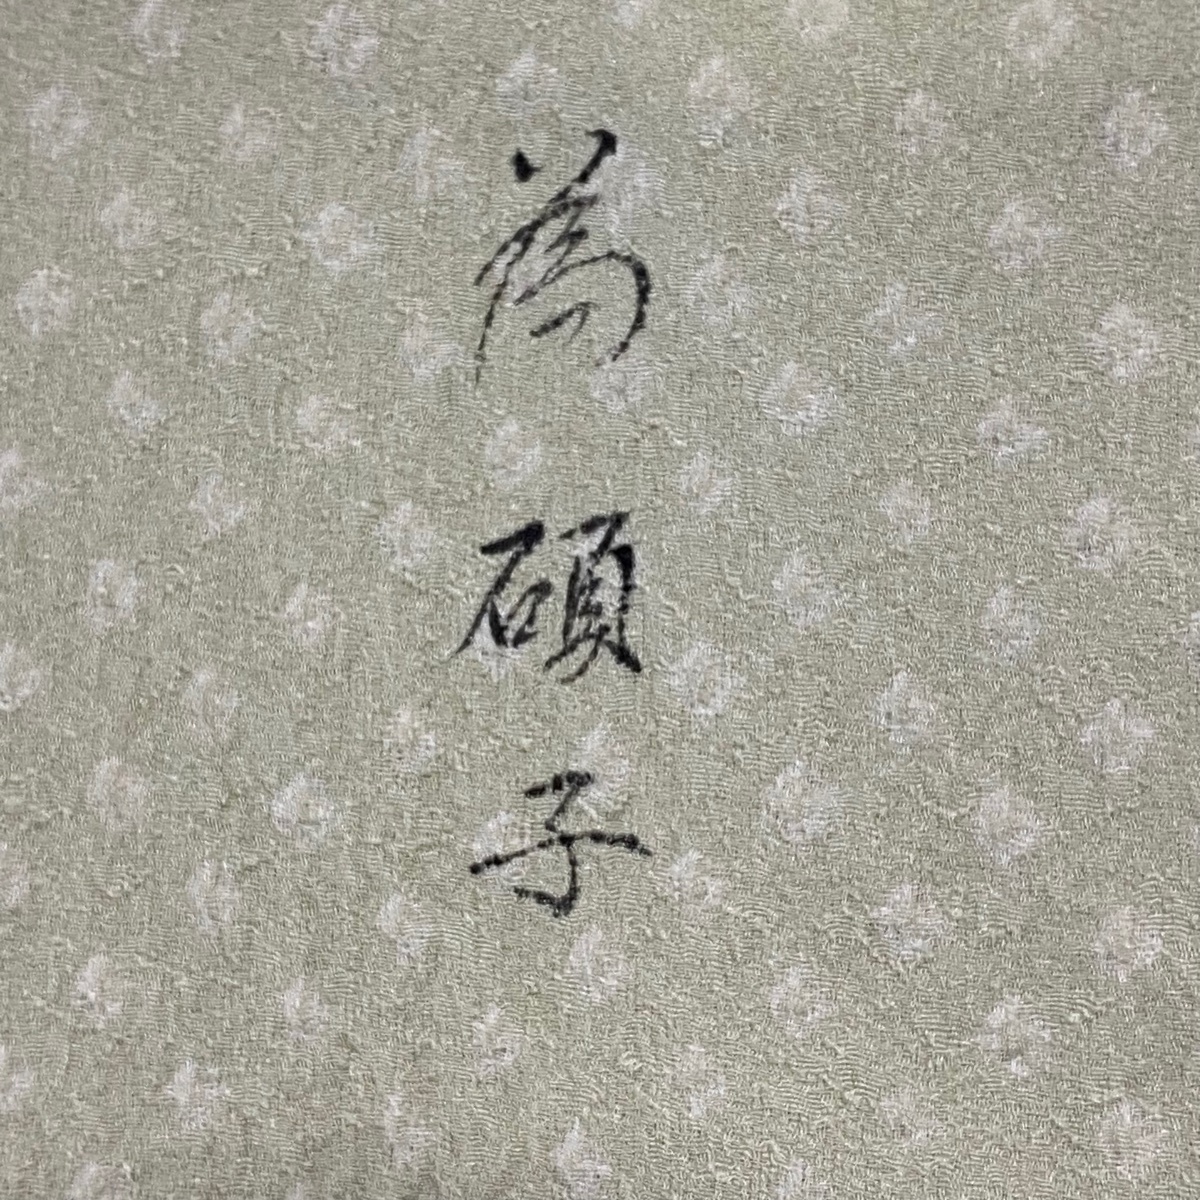 為
碩
子